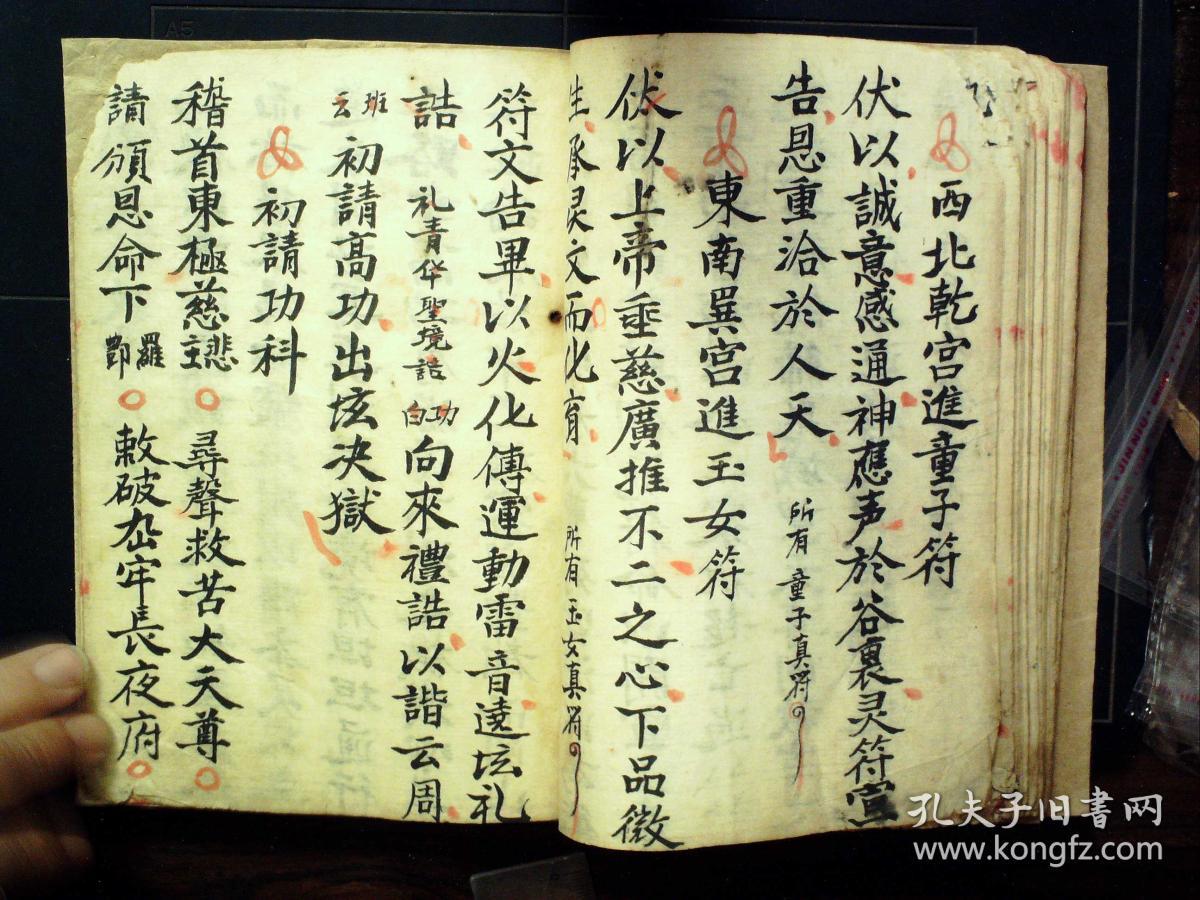 西北乾宫進童子符
伏以誠意感通神應声於谷裏灵符宣
告恩重洽於人天 所有童子真符
東南巽宫進玉女符
伏以上帝垂慈廣推不二之心下品微
生承灵文而化育 所有玉女真符
符文告畢以火化傅運動雷音遶坛礼
誥 礼青华聖境誥 功白 向來禮誥以諧云周
班云 初請高功出坛决獄
初請功科
稽首東極慈悲主 尋聲救苦大天尊
請頒恩命下羅酆 敕破牢長夜府
孔夫子旧書网
www.kongfz.com
A5